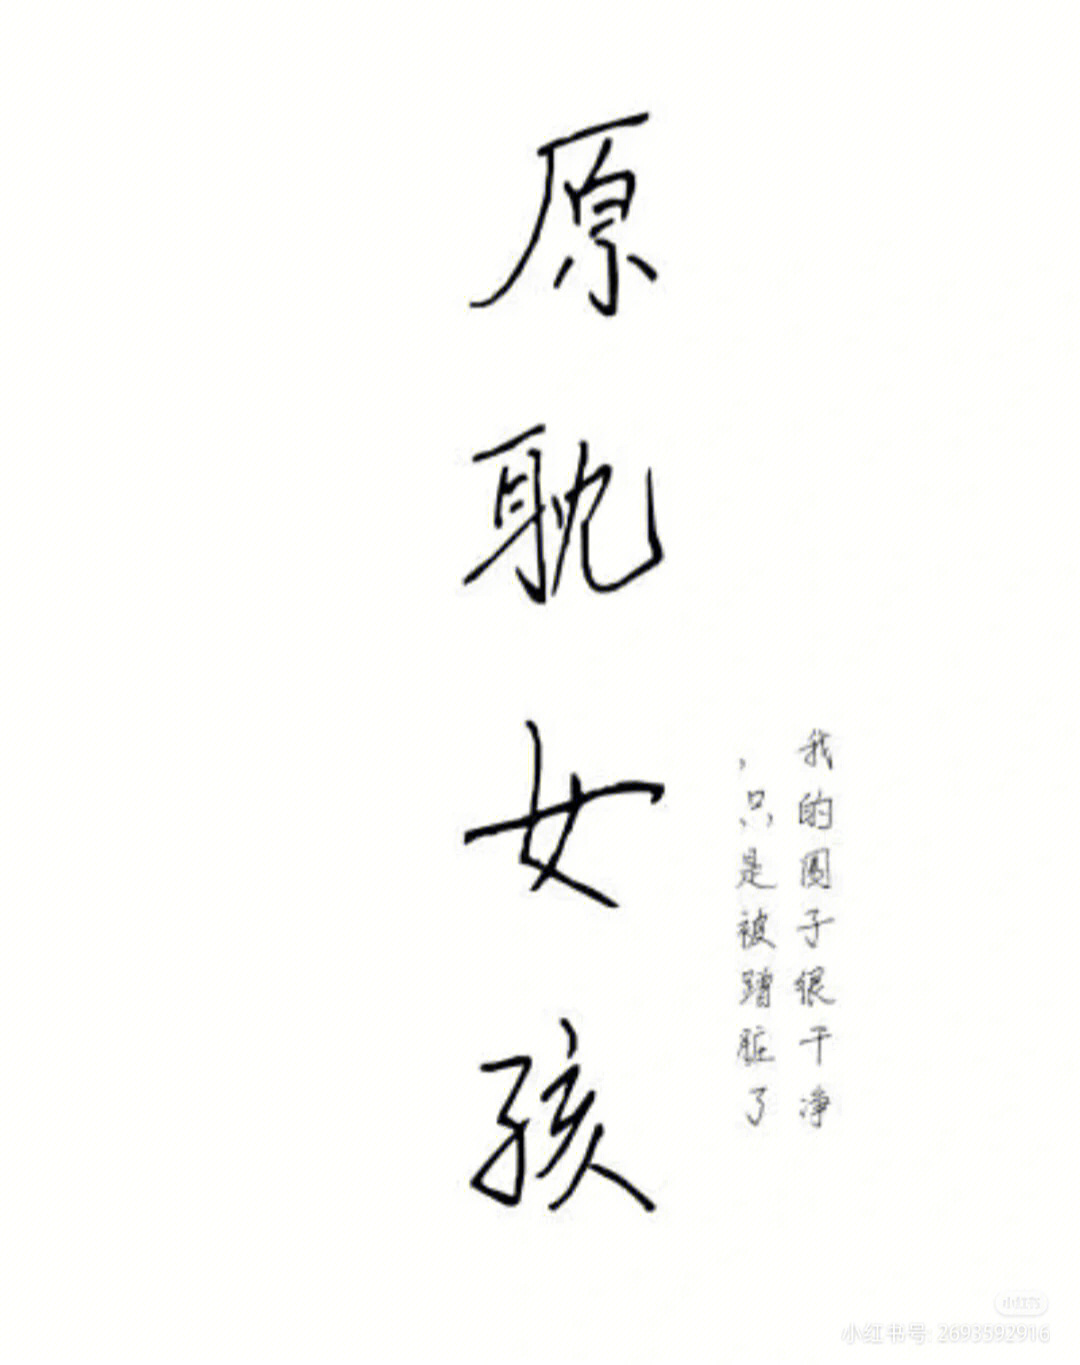 原耽女孩
我的圈子很干净
，只是被蹧脏了
小红书
小红书号: 2693392916